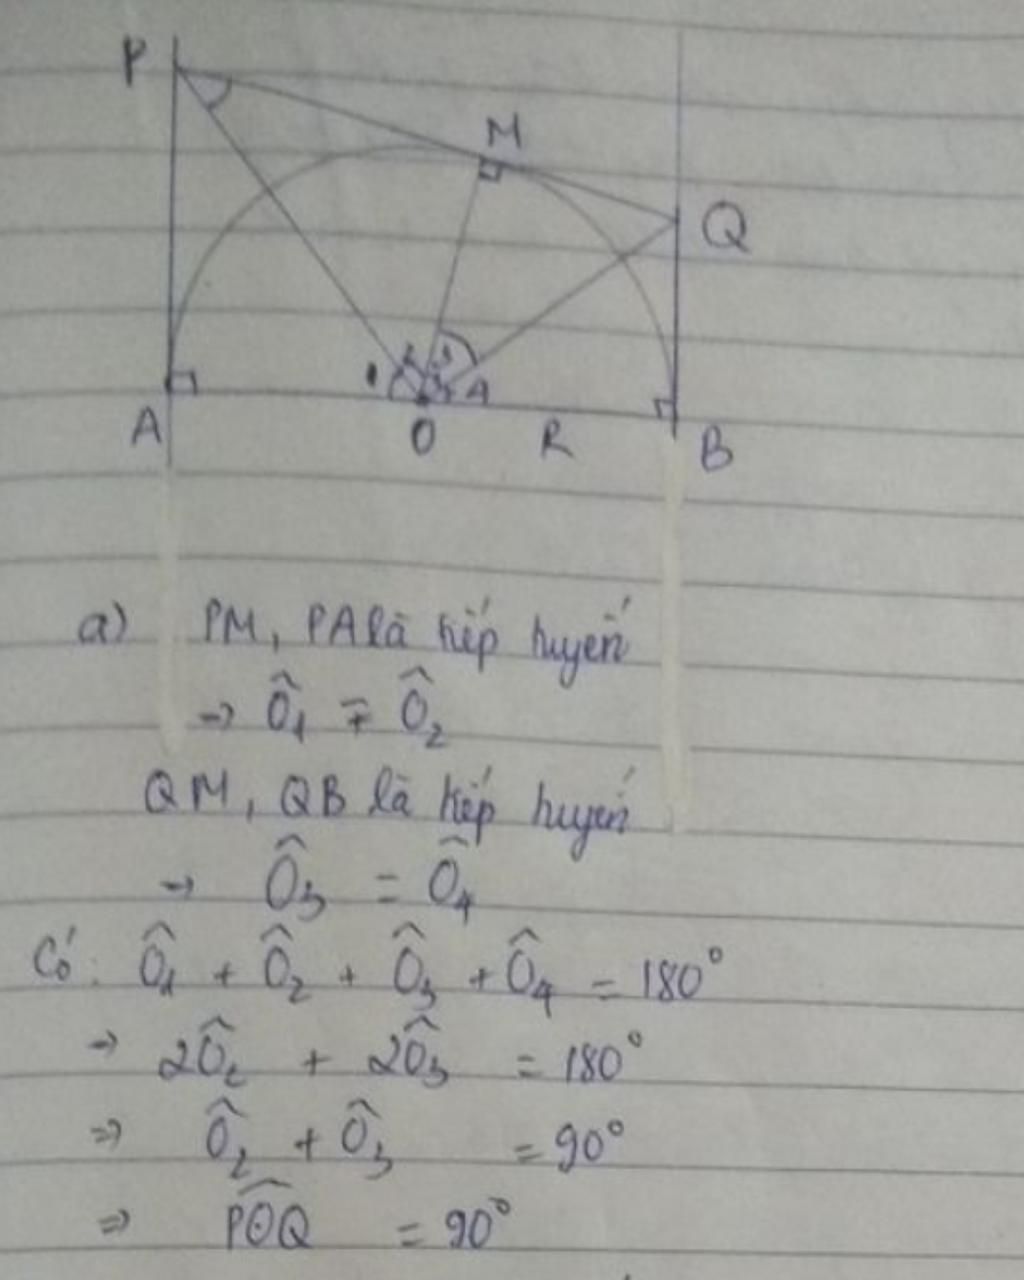 P
M
Q
1 2 3 4
A
O
R
B
a) PM, PA là tiếp tuyến
→ Ô₁ = Ô₂
QM, QB là tiếp tuyến
→ Ô₃ = Ô₄
Có: Ô₁ + Ô₂ + Ô₃ + Ô₄ = 180°
→ 2Ô₂ + 2Ô₃ = 180°
⇒ Ô₂ + Ô₃ = 90°
⇒ PÔQ = 90°